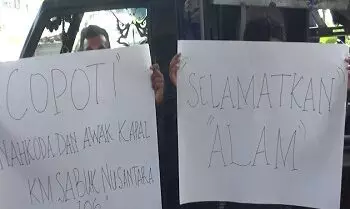 COPOTI
NAHKODA DAN AWAK KAPAL
KM SABUK NUSANTARA
106"
"SELAMATKAN"
"ALAM"